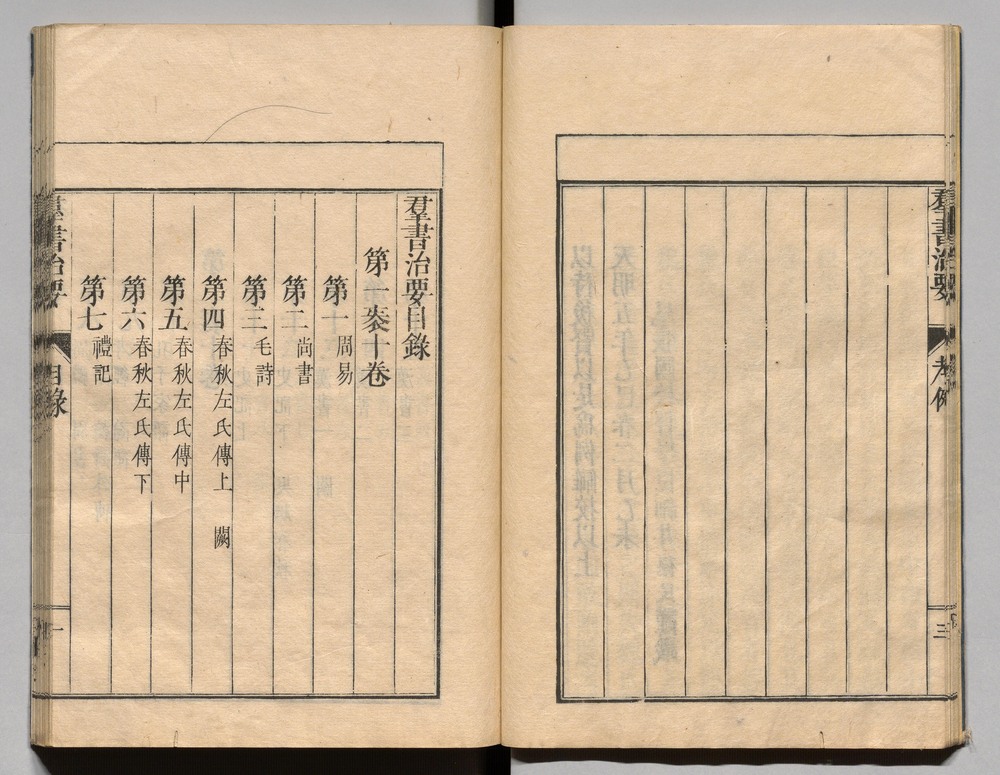 羣書治要 考例 三
羣書治要目錄
第一袠十卷
第一 周易
第二 尚書
第三 毛詩
第四 春秋左氏傳上 闕
第五 春秋左氏傳中
第六 春秋左氏傳下
第七 禮記
羣書治要 目錄 一